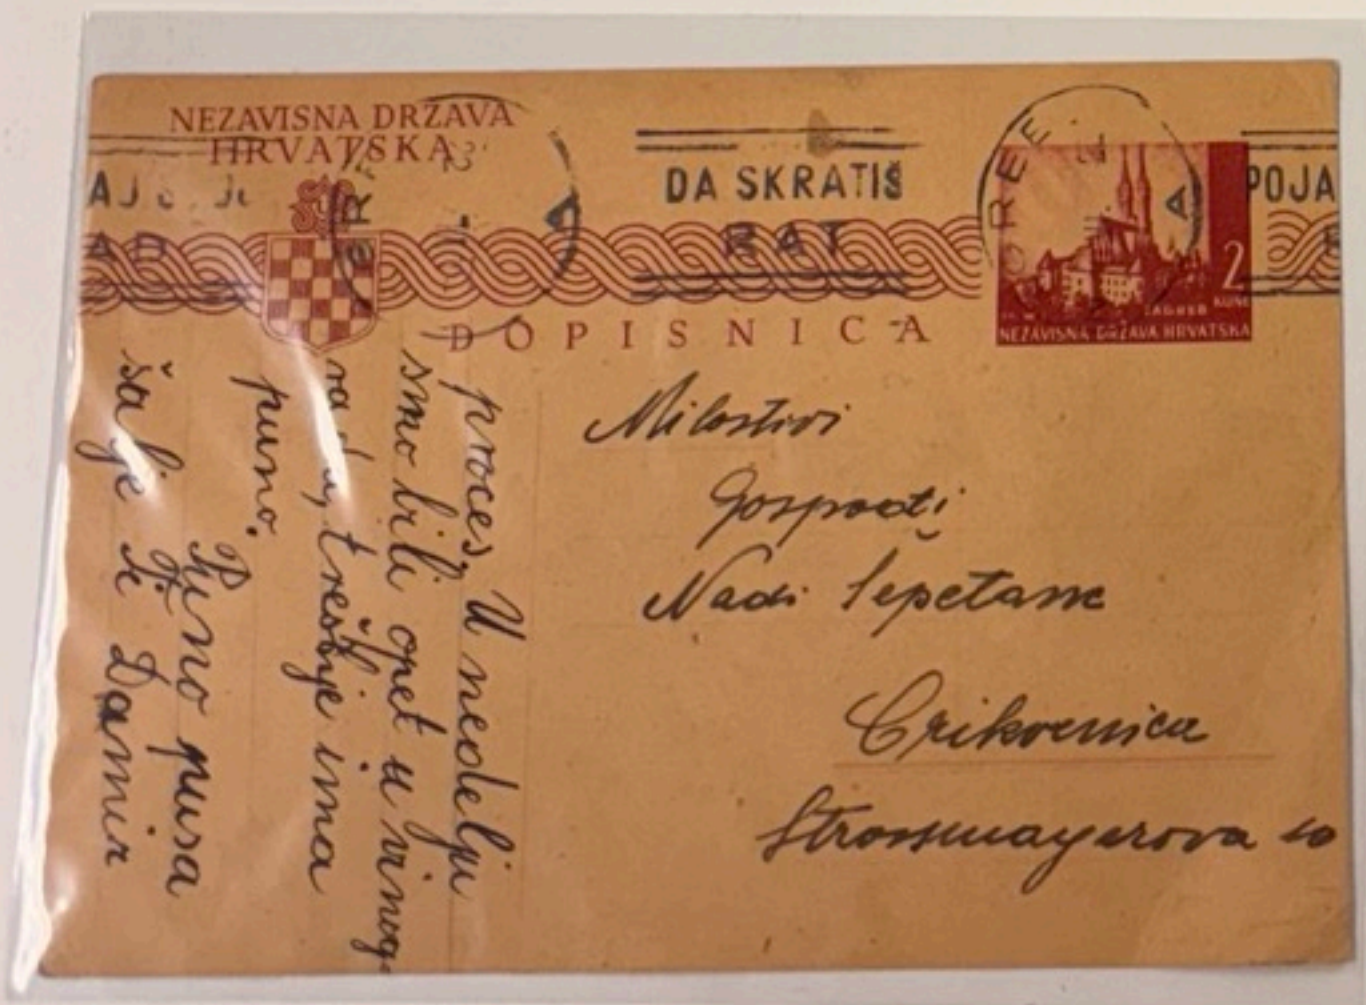 NEZAVISNA DRŽAVA
HRVATSKA
DA SKRATIŠ
RAT
POJA
AD
DOPISNICA
2
KUNE
ZAGREB
NEZAVISNA DRŽAVA HRVATSKA
Milostivi
Gospođi
Nadi Sepetanc
Crikvenica
Strossmayerova 10
proces, U nedelju
smo bili opet u vinog
puno.
Puno pusa
šalje ti Damir